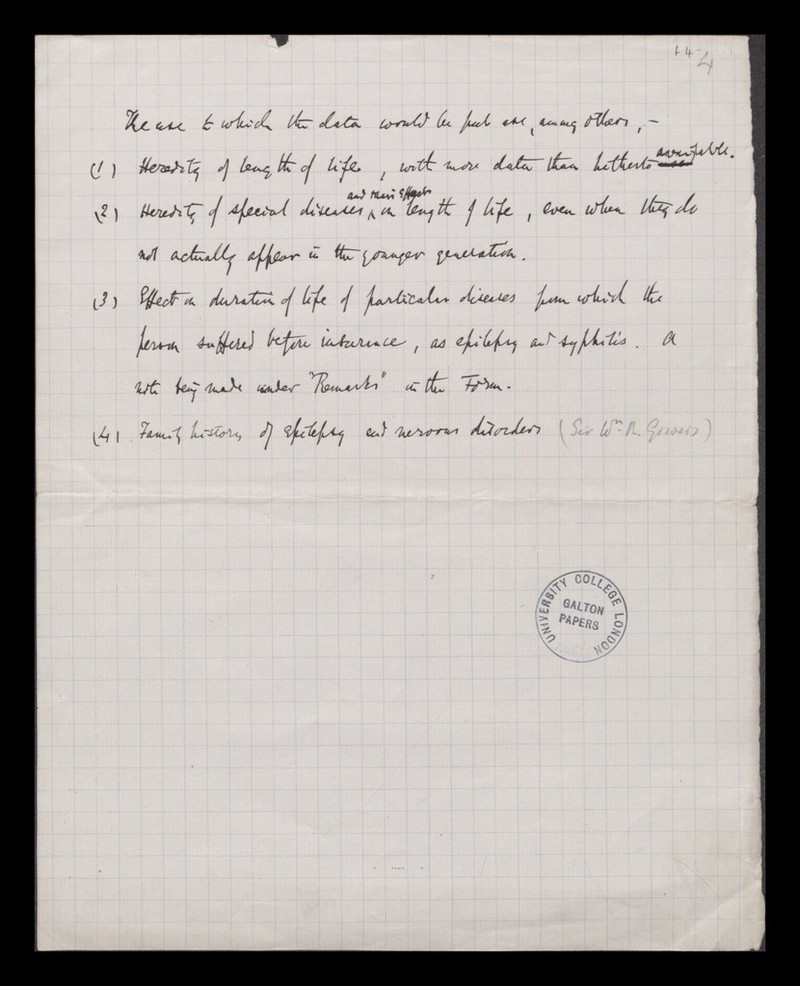 f 4 4
The use to which the data would be put are, among others, –
(1) Heredity of length of life, with more data than hitherto available.
and their effects
(2) Heredity of special diseases ‸ on length of life, even when they do
not actually appear in the younger generation.
(3) Effect on duration of life of particular diseases from which the
person suffered before insurance, as epilepsy and syphilis. A
note being made under "Remarks" in the Form.
(4) Family history of epilepsy and nervous disorders (Sir Wm R. Gowers)
UNIVERSITY COLLEGE LONDON
GALTON
PAPERS